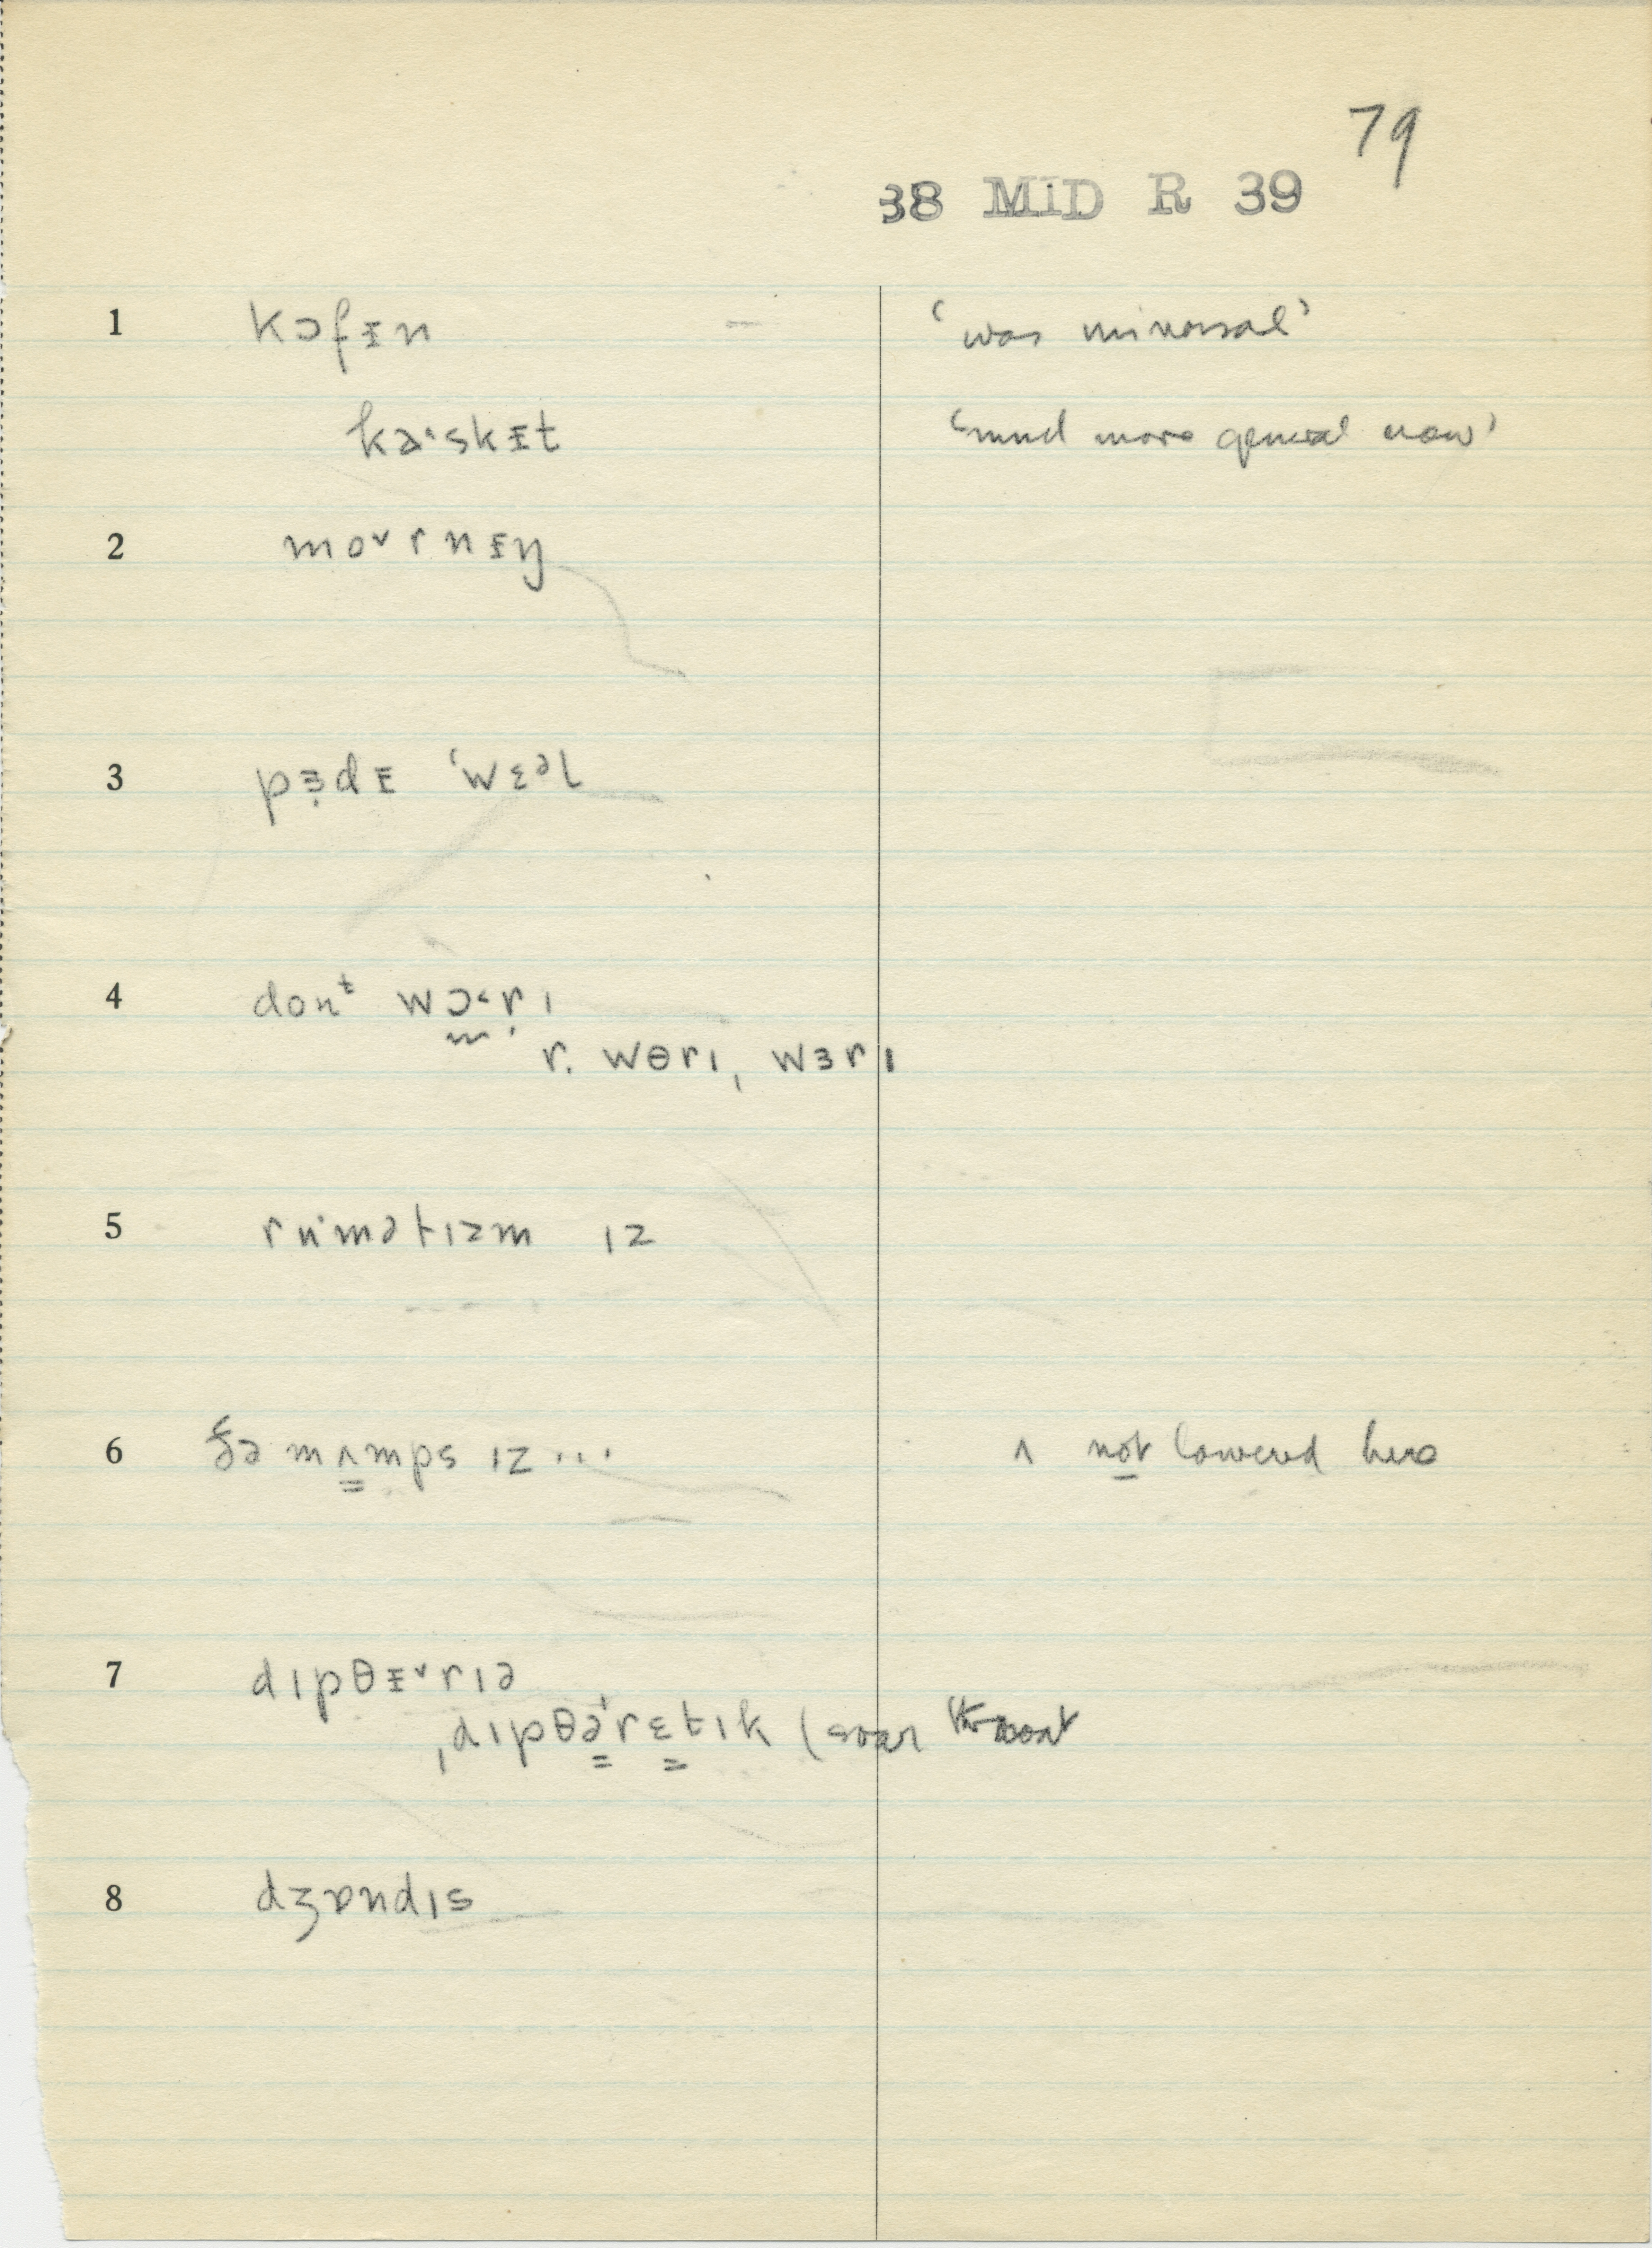 79
38 MID R 39
1 kɔfᵻn ‘was universal’
kaˑskᵻt ‘much more general now’
2 moˇrnᵻŋ
3 pɜ̣dᵻ ˈwɛᵊl
4 donᵗ wɔ˂rɪ
r. wɵrɪ, wɜrɪ
5 ruˑmətɪzm ɪz
6 ðə mʌ̳mps ɪz... ʌ not lowered here
7 dɪpθᵻˇrɪə
ˌdɪpθə̳ˈrɛ̳tɪk (soar throat
8 dʒɒndɪs